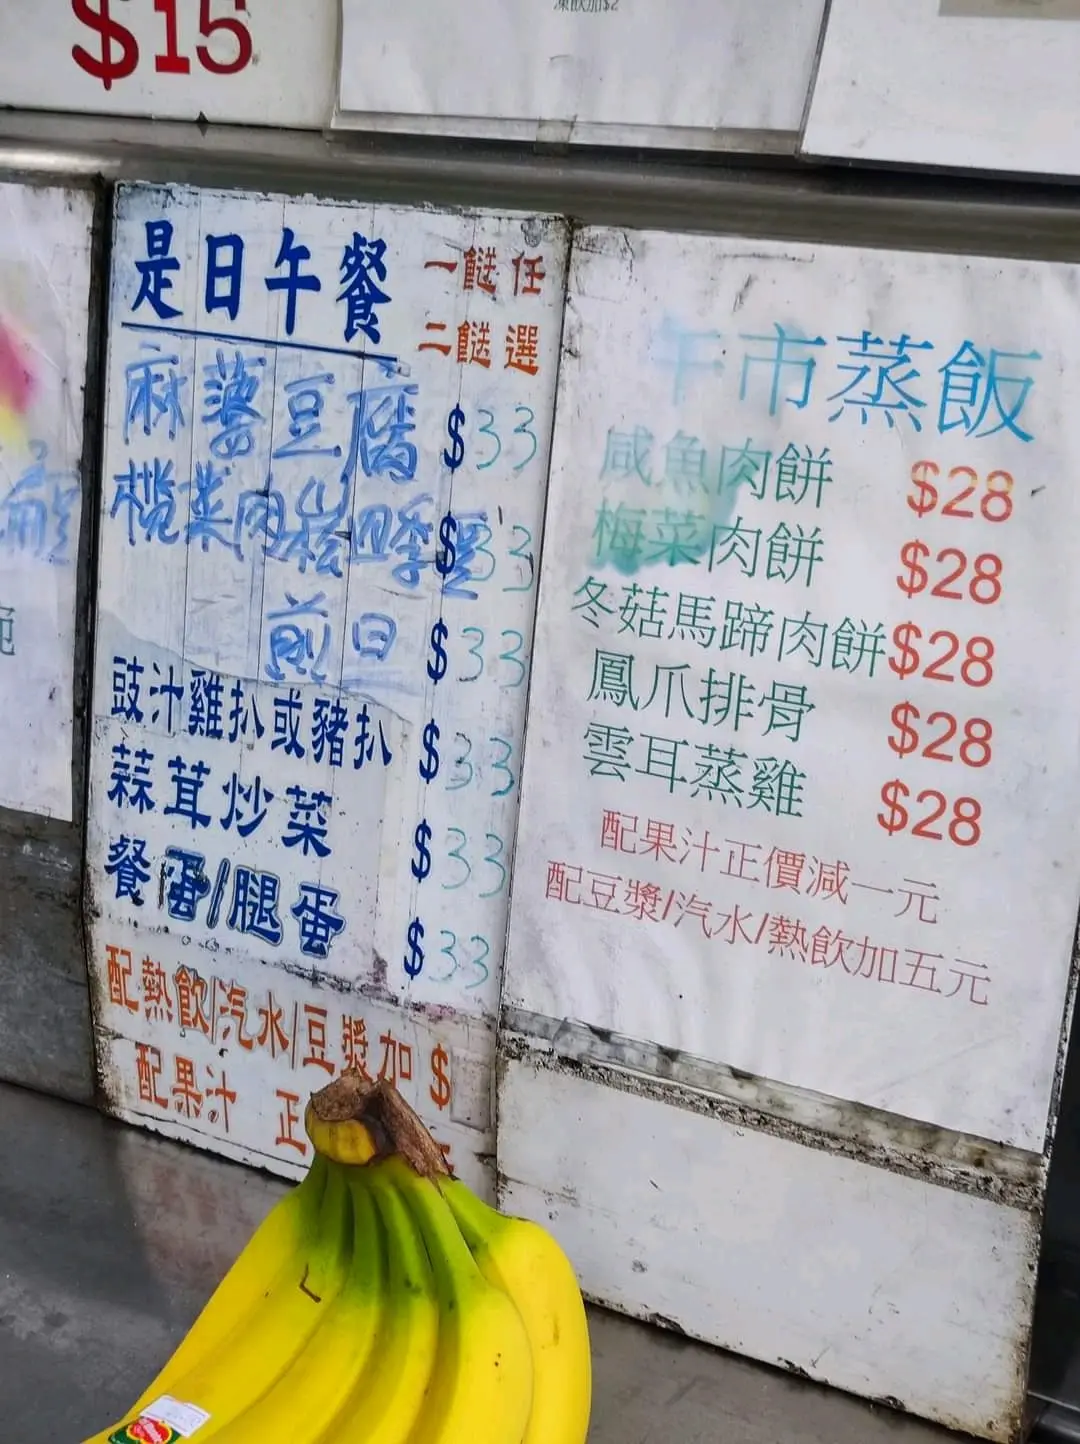 $15
凍飲加$2
是日午餐
一餸任
二餸選
麻婆豆腐 $33
欖菜肉崧四季豆 $33
煎旦 $33
豉汁雞扒或豬扒 $33
蒜茸炒菜 $33
餐蛋/腿蛋 $33
配熱飲/汽水/豆漿加 $
配果汁 正
午市蒸飯
咸魚肉餅 $28
梅菜肉餅 $28
冬菇馬蹄肉餅 $28
鳳爪排骨 $28
雲耳蒸雞 $28
配果汁正價減一元
配豆漿/汽水/熱飲加五元